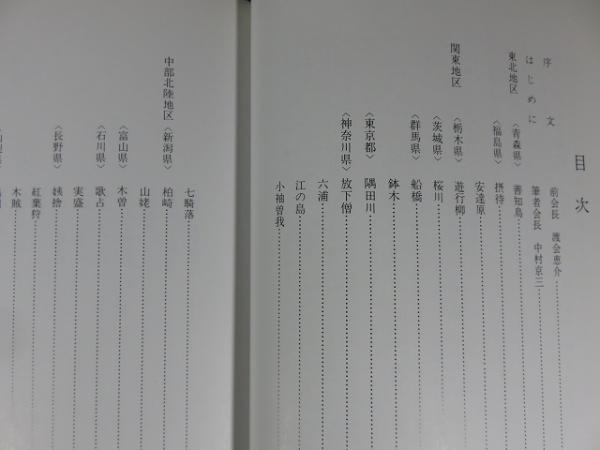 目次
序文 前会長 渡会恵介
はじめに 筆者会長 中村京三
東北地区 〈青森県〉 善知鳥
〈福島県〉 摂待
安達原
関東地区 〈栃木県〉 遊行柳
〈茨城県〉 桜川
〈群馬県〉 船橋
鉢木
〈東京都〉 隅田川
〈神奈川県〉 放下僧
六浦
江の島
小袖曽我
七騎落
中部北陸地区 〈新潟県〉 柏崎
山姥
〈富山県〉 木曽
〈石川県〉 歌占
実盛
〈長野県〉 姨捨
紅葉狩
木賊